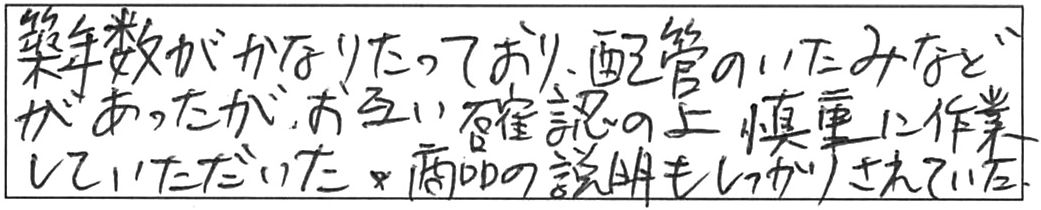 築年数がかなりたっており、配管のいたみなど
があったが、お互い確認の上 慎重に作業
していただいた。商品の説明もしっかりされていた。